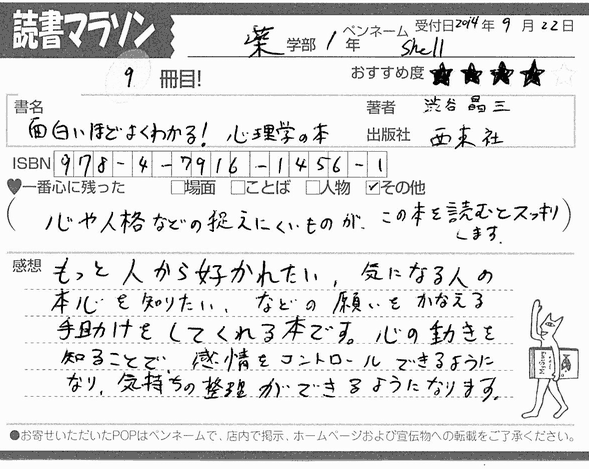 読書マラソン
薬 学部 1 年 ペンネーム Shell 受付日 2014 年 9 月 22 日
9 冊目! おすすめ度 ★★★★☆
書名 面白いほどよくわかる! 心理学の本
著者 渋谷昌三
出版社 西東社
ISBN 978-4-7916-1456-1
♥一番心に残った □場面 □ことば □人物 ☑その他
(心や人格などの捉えにくいものが、この本を読むとスッキリします。)
感想 もっと人から好かれたい、気になる人の
本心を知りたい、などの願いをかなえる
手助けをしてくれる本です。心の動きを
知ることで、感情をコントロールできるように
なり、気持ちの整理ができるようになります。
●お寄せいただいたPOPはペンネームで、店内で掲示、ホームページおよび宣伝物への転載をご了承ください。